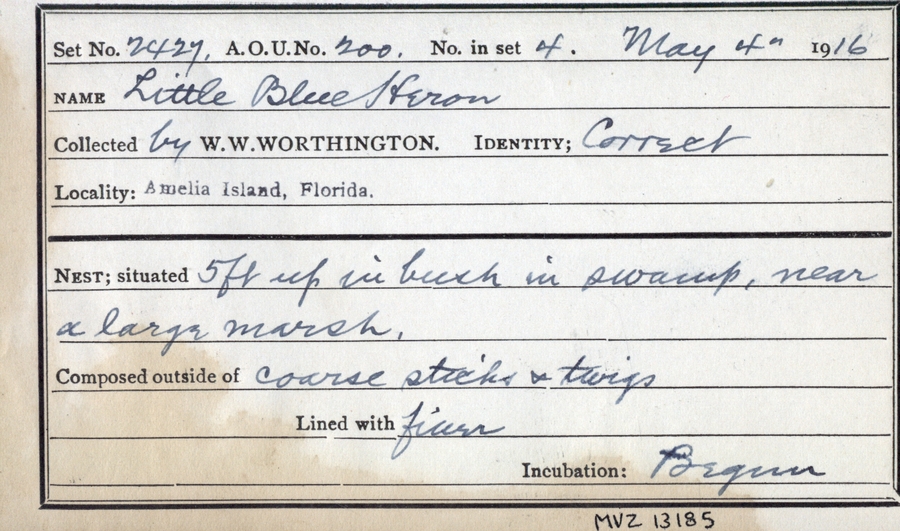 Set No. 2427, A.O.U. No. 200. No. in set 4. May 4" 1916
NAME Little Blue Heron
Collected by W.W.WORTHINGTON. IDENTITY; Correct
Locality: Amelia Island, Florida.
NEST; situated 5ft up in bush in swamp, near
a large marsh.
Composed outside of coarse sticks & twigs
Lined with finer
Incubation: Begun
MVZ 13185